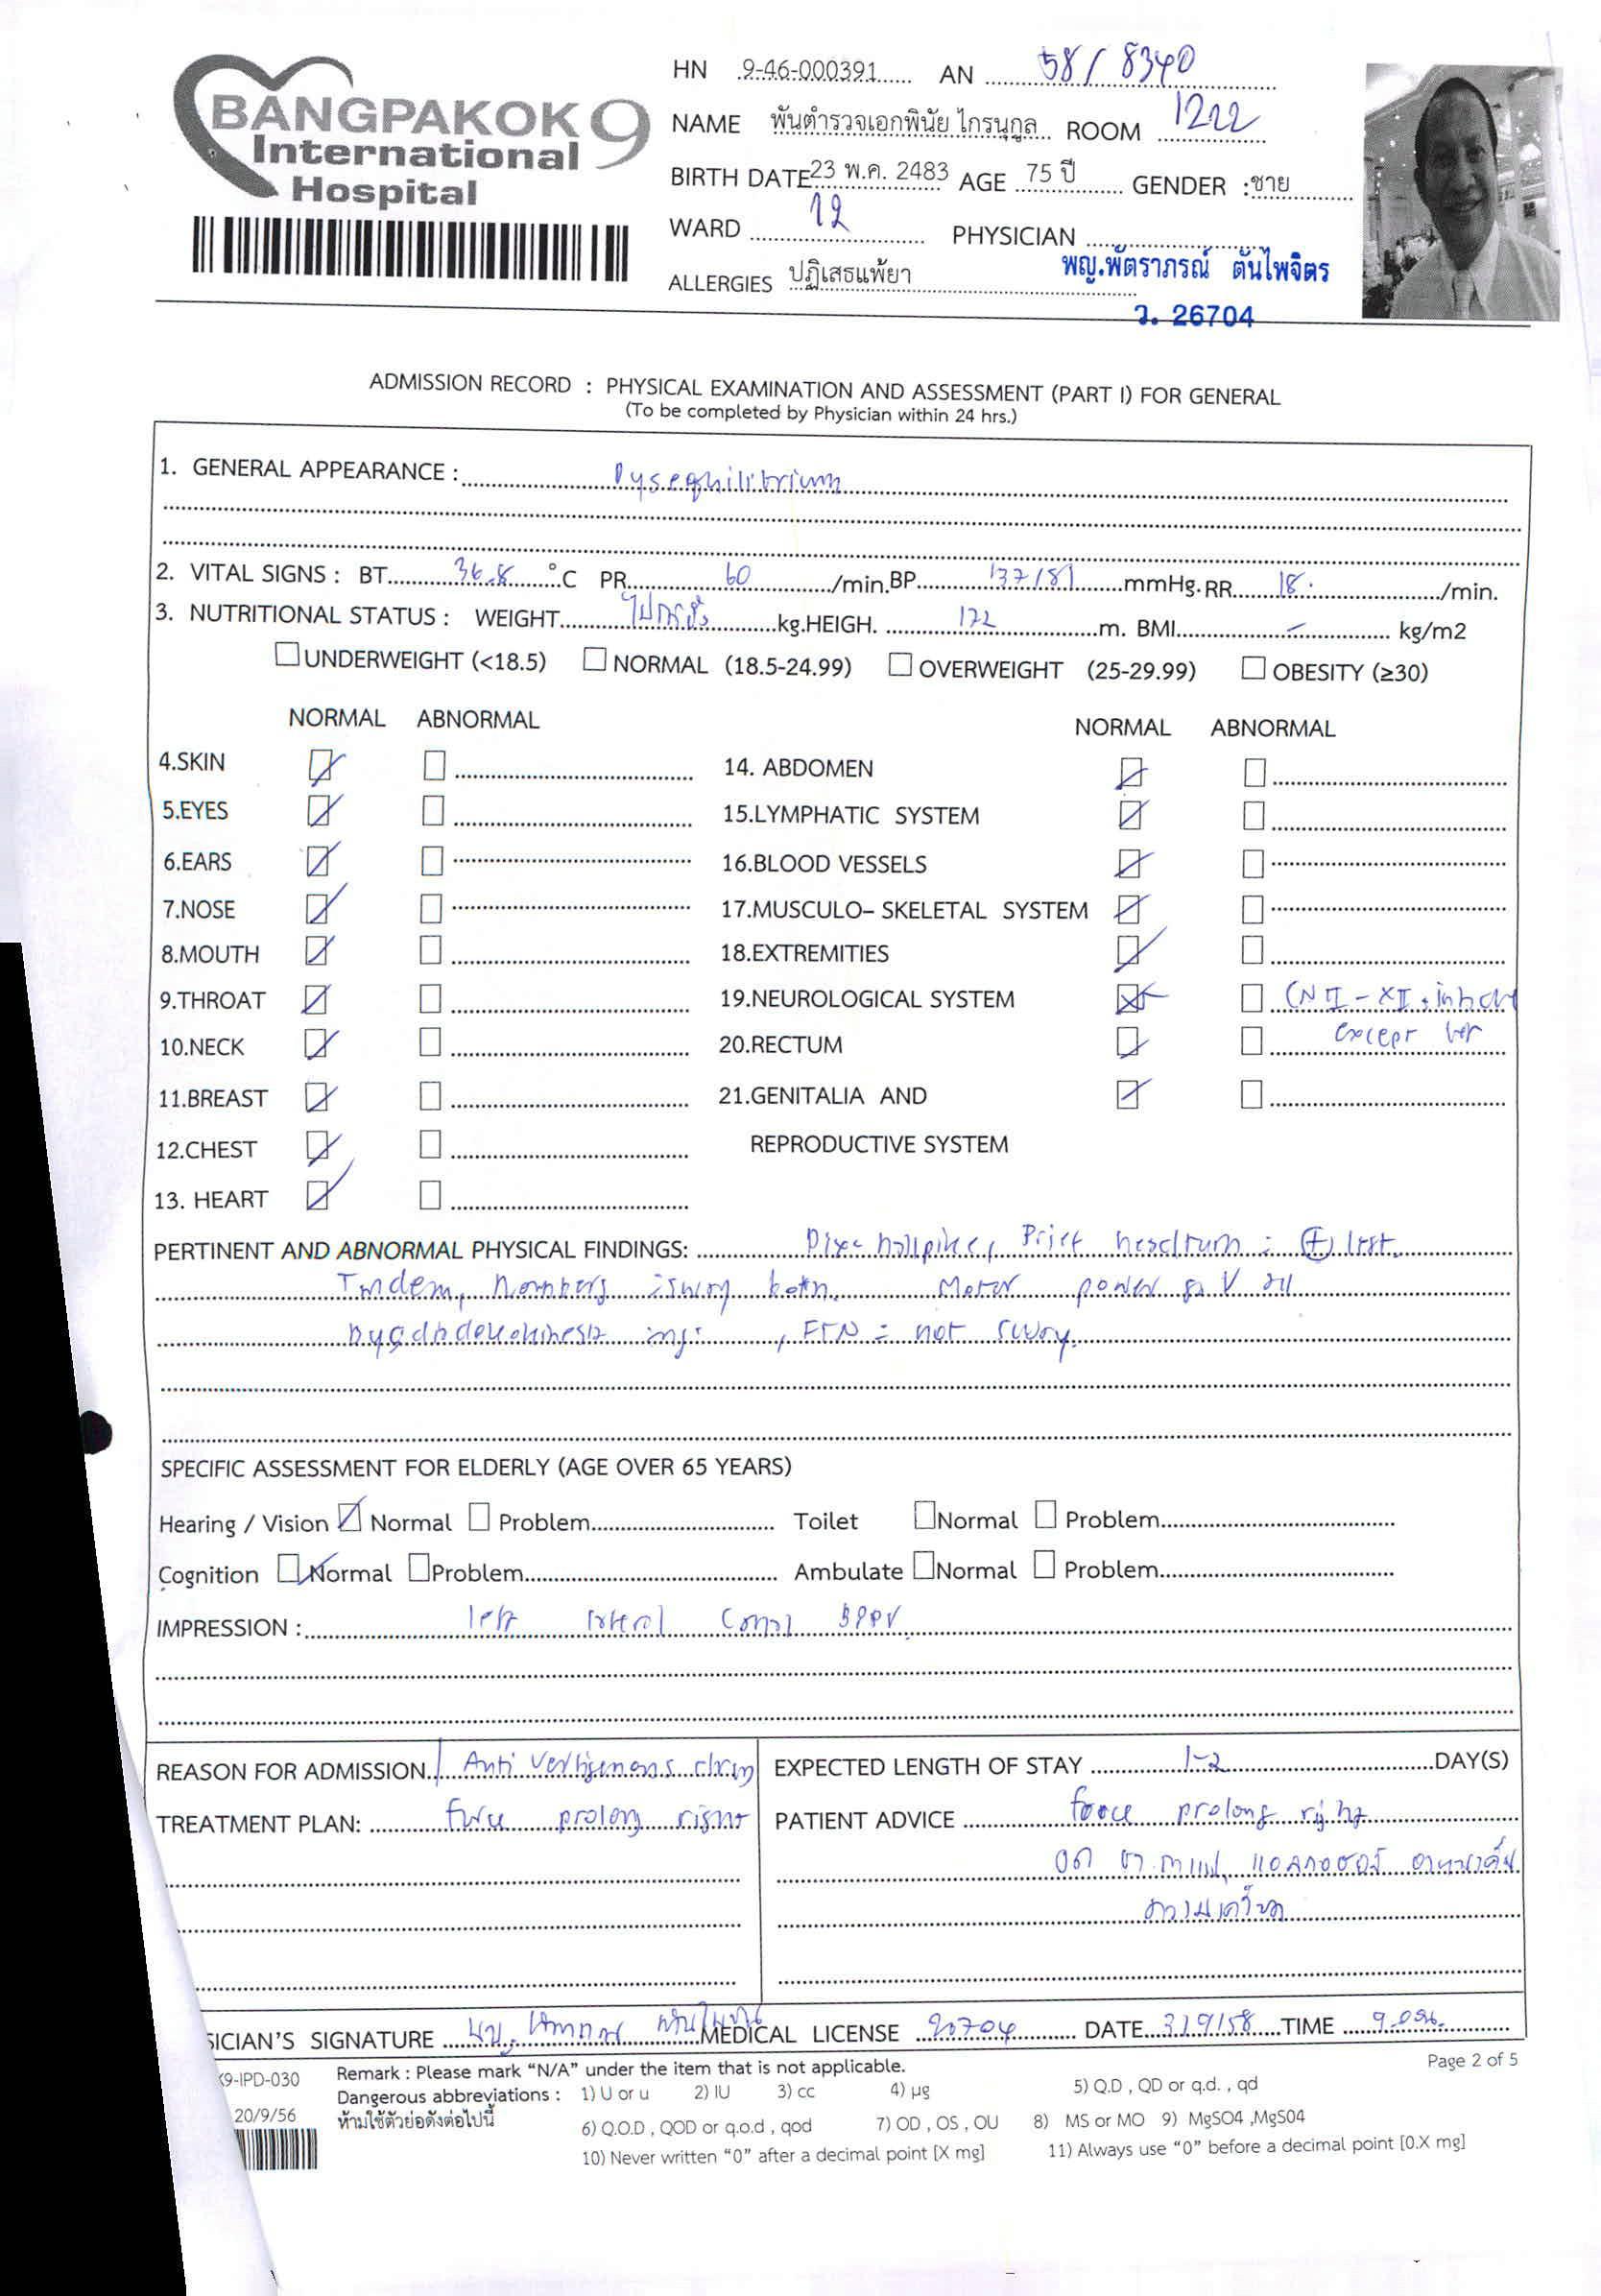 BANGPAKOK 9
International
Hospital
HN 9-46-000391 AN 58/8340
NAME พันตำรวจเอกพินัย ไกรนุกูล ROOM 1222
BIRTH DATE 23 พ.ค. 2483 AGE 75 ปี GENDER :ชาย
WARD 12 PHYSICIAN
ALLERGIES ปฏิเสธแพ้ยา พญ.พัตราภรณ์ ตันไพจิตร
ว. 26704
ADMISSION RECORD : PHYSICAL EXAMINATION AND ASSESSMENT (PART I) FOR GENERAL
(To be completed by Physician within 24 hrs.)
1. GENERAL APPEARANCE :
2. VITAL SIGNS : BT 36.8 °C PR 60 /min. BP 137/81 mmHg. RR 18 /min.
3. NUTRITIONAL STATUS : WEIGHT kg. HEIGH. 172 m. BMI - kg/m2
UNDERWEIGHT (<18.5) NORMAL (18.5-24.99) OVERWEIGHT (25-29.99) OBESITY (≥30)
NORMAL ABNORMAL NORMAL ABNORMAL
4.SKIN 14. ABDOMEN
5.EYES 15.LYMPHATIC SYSTEM
6.EARS 16.BLOOD VESSELS
7.NOSE 17.MUSCULO- SKELETAL SYSTEM
8.MOUTH 18.EXTREMITIES
9.THROAT 19.NEUROLOGICAL SYSTEM CN II - XII
10.NECK 20.RECTUM except
11.BREAST 21.GENITALIA AND
12.CHEST REPRODUCTIVE SYSTEM
13. HEART
PERTINENT AND ABNORMAL PHYSICAL FINDINGS:
Motor power V all
FTN = not sway.
SPECIFIC ASSESSMENT FOR ELDERLY (AGE OVER 65 YEARS)
Hearing / Vision Normal Problem Toilet Normal Problem
Cognition Normal Problem Ambulate Normal Problem
IMPRESSION : left lateral canal BPPV
REASON FOR ADMISSION Anti EXPECTED LENGTH OF STAY 1-2 DAY(S)
TREATMENT PLAN: force prolong right PATIENT ADVICE force prolong right
SICIAN'S SIGNATURE MEDICAL LICENSE DATE 3/9/58 TIME
Remark : Please mark "N/A" under the item that is not applicable. Page 2 of 5
K9-IPD-030 Dangerous abbreviations : 1) U or u 2) IU 3) cc 4) µg 5) Q.D , QD or q.d. , qd
20/9/56 ห้ามใช้ตัวย่อดังต่อไปนี้ 6) Q.O.D , QOD or q.o.d , qod 7) OD , OS , OU 8) MS or MO 9) MgSO4 ,MgS04
10) Never written "0" after a decimal point [X mg] 11) Always use "0" before a decimal point [0.X mg]